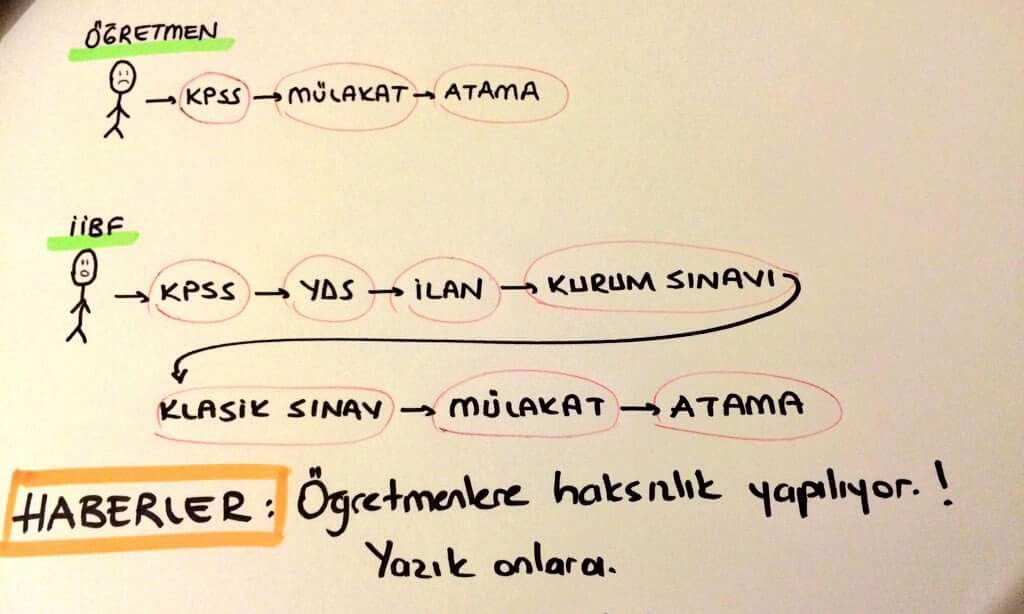 ÖĞRETMEN
→ KPSS → MÜLAKAT → ATAMA
İİBF
→ KPSS → YDS → İLAN → KURUM SINAVI
KLASİK SINAV → MÜLAKAT → ATAMA
HABERLER: Öğretmenlere haksızlık yapılıyor.!
Yazık onlara.